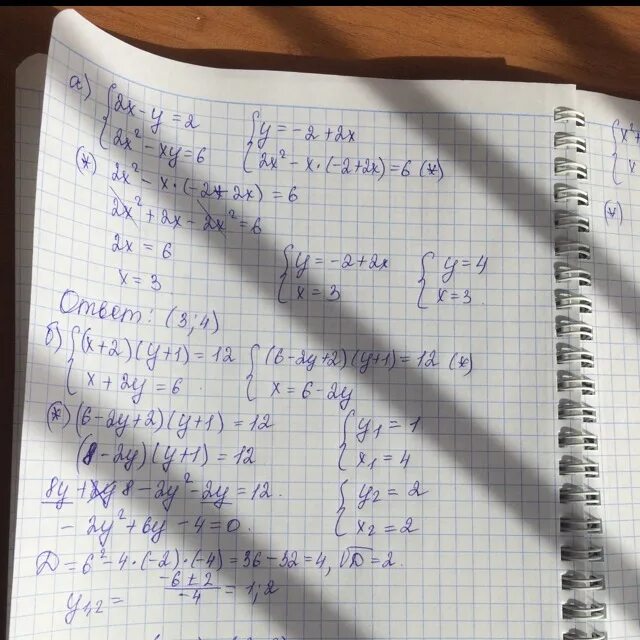 а) { 2x - y = 2   { y = -2 + 2x
{ 2x² - xy = 6   { 2x² - x·(-2+2x) = 6 (*)
(*) 2x² - x·(-2+2x) = 6
2x² + 2x - 2x² = 6
2x = 6
x = 3
{ y = -2 + 2x   { y = 4
{ x = 3   { x = 3.
Ответ: (3; 4)
б) { (x+2)(y+1) = 12   { (6-2y+2)(y+1) = 12 (*)
{ x + 2y = 6   { x = 6 - 2y
(*) (6-2y+2)(y+1) = 12
(8-2y)(y+1) = 12
8y + 8 - 2y² - 2y = 12.
- 2y² + 6y - 4 = 0.
{ y₁ = 1
{ x₁ = 4
{ y₂ = 2
{ x₂ = 2
D = 6² - 4·(-2)·(-4) = 36 - 32 = 4, √D = 2.
y₁,₂ = (-6 ± 2)/(-4) = 1; 2
{ x²+
{ x
(*)